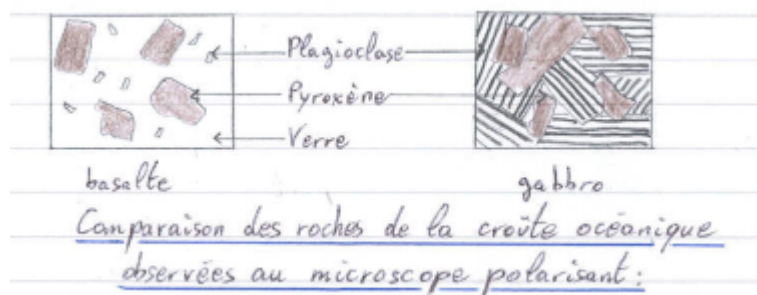 Plagioclase
Pyroxène
Verre
basalte
gabbro
Comparaison des roches de la croûte océanique
observées au microscope polarisant :